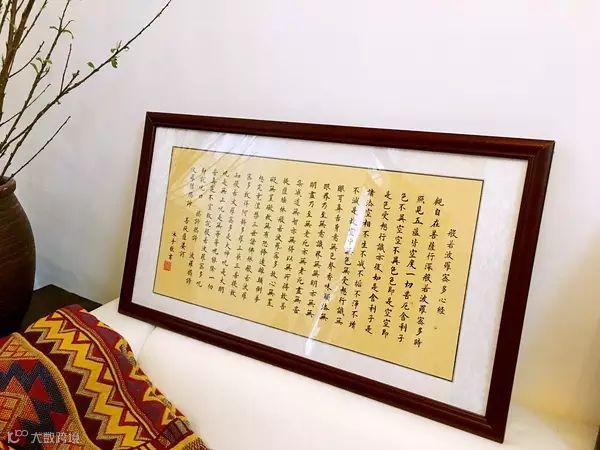 般若波羅蜜多心經
觀自在菩薩行深般若波羅蜜多時
照見五蘊皆空度一切苦厄舍利子
色不異空空不異色色即是空空即
是色受想行識亦復如是舍利子是
諸法空相不生不滅不垢不淨不增
不減是故空中無色無受想行識無
眼耳鼻舌身意無色聲香味觸法無
眼界乃至無意識界無無明亦無無
明盡乃至無老死亦無老死盡無苦
集滅道無智亦無得以無所得故菩
提薩埵依般若波羅蜜多故心無罣
礙無罣礙故無有恐怖遠離顛倒夢
想究竟涅槃三世諸佛依般若波羅
蜜多故得阿耨多羅三藐三菩提故
知般若波羅蜜多是大神咒是大明
咒是無上咒是無等等咒能除一切
苦真實不虛故說般若波羅蜜多咒
即說咒曰 揭諦揭諦 波羅揭諦
波羅僧揭諦 菩提薩婆訶
大数跨境